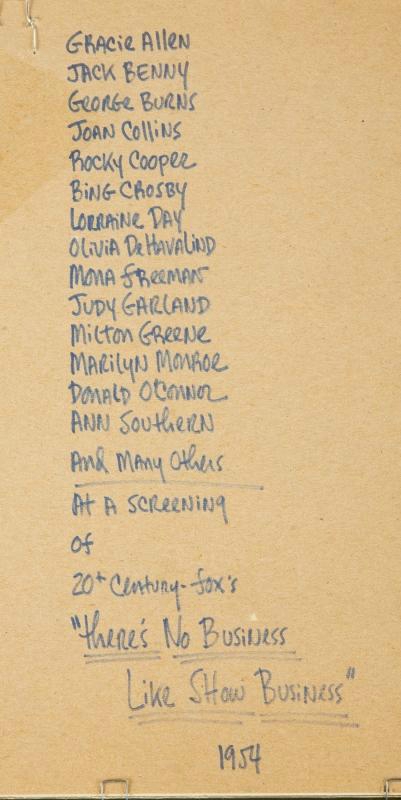 Gracie Allen
Jack Benny
George Burns
Joan Collins
Rocky Cooper
Bing Crosby
Lorraine Day
Olivia DeHavalind
Mona Freeman
Judy Garland
Milton Greene
Marilyn Monroe
Donald O'Connor
Ann Southern
And Many Others
At A Screening
of
20th Century-Fox's
"There's No Business
Like Show Business"
1954